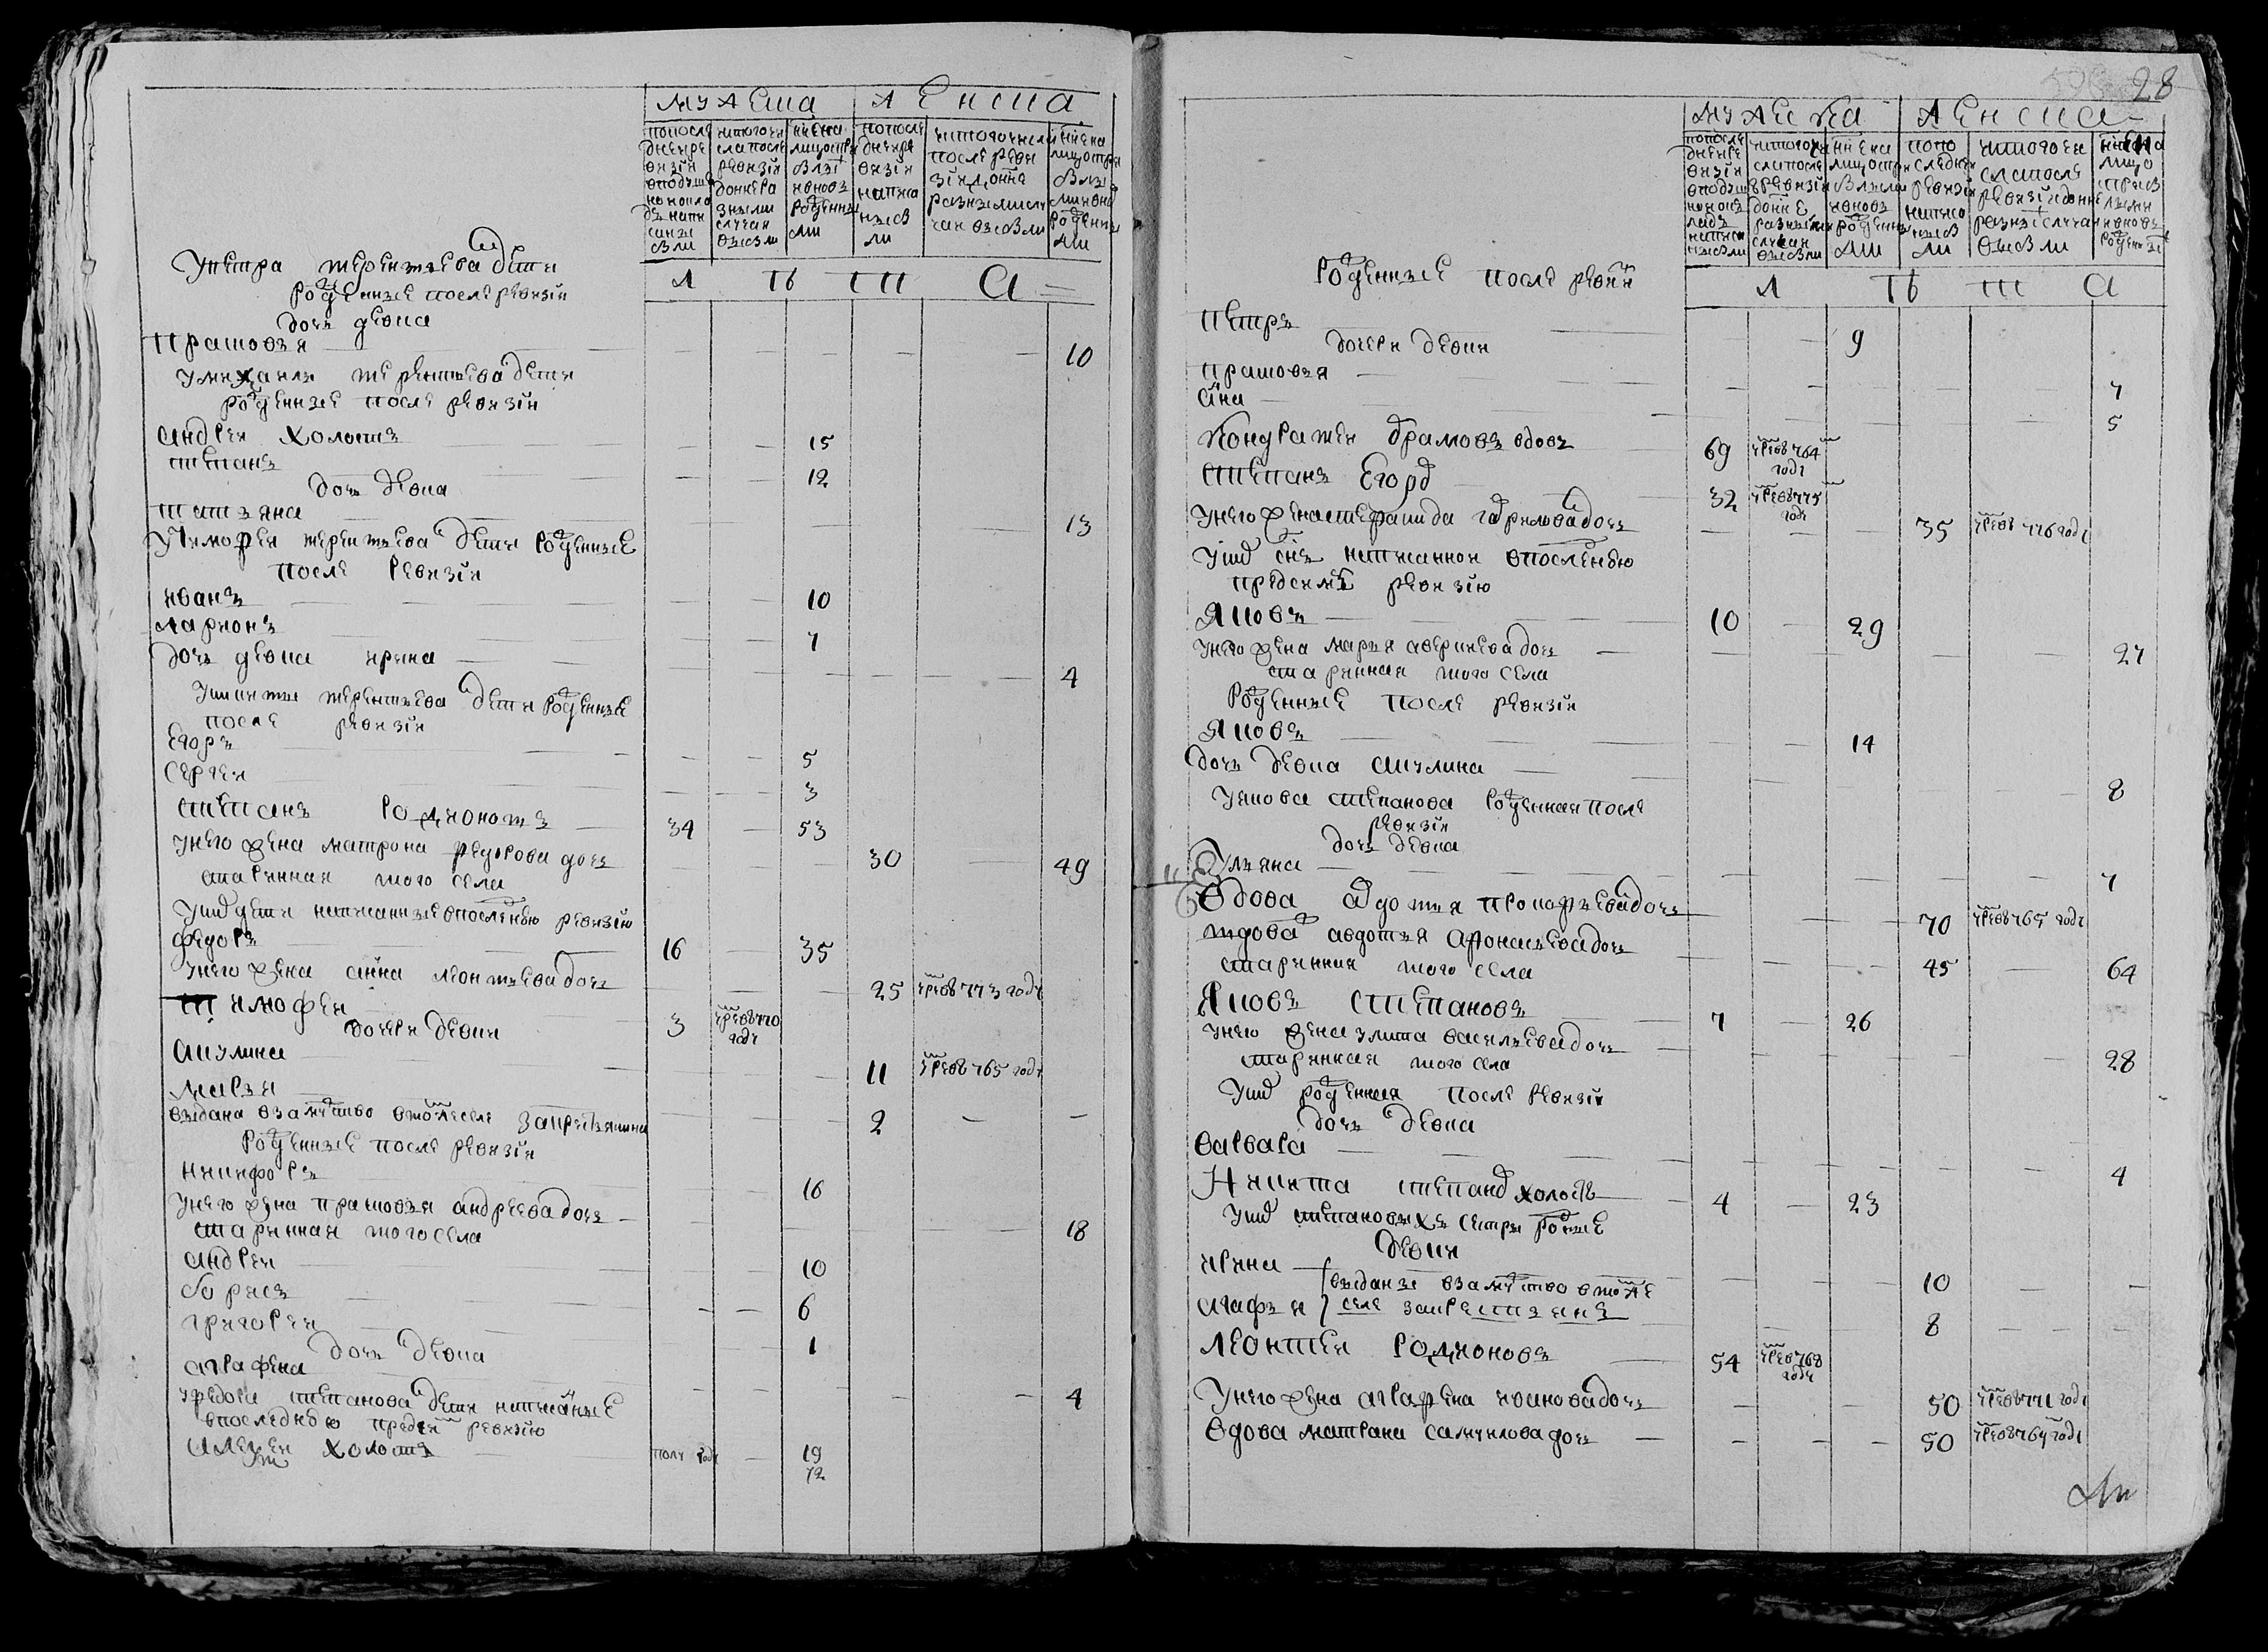 мужеска
женска
по последней ревизiи в подушном окладе написаны были
из того числа после ревизiи до ныне разными случаи выбыли
ныне на лицо с прибылыми и вновь рожденными
по последней ревизiи написаны были
из того числа после ревизiи до ныне разными случаи выбыли
ныне на лицо с прибылыми и вновь рожденными
Л Ѣ Т А
у петра терентьева дети
рожденные после ревизiи
дочь девка
прасковья 10
у михаила терентьева дети
рожденные после ревизiи
андреи холостъ 15
степанъ 12
дочь девка
татьяна 13
у тимофея терентьева дети рожденные
после ревизiи
иванъ 10
ларионъ 7
дочь девка ирина 4
у никиты терентьева дети рожденные
после ревизiи
егоръ 5
сергеи 3
степанъ родионовъ 34 53
у него жена матрона федорова дочь 30 49
старинная того села
у них дети написанные в последнюю ревизiю
федоръ 16 35
у него жена анна леонтьева дочь 25 умре в 773 годе
тимофеи 3 умре в 770 годе
дочери девки
акулина 11 умре в 765 годе
марья 2
выдана в замужство в томже селе за крестьянина
рожденные после ревизiи
никифоръ 16
у него жена прасковья андреева дочь 18
старинная того села
андреи 10
борисъ 6
григореи 1
дочь девка
аграфена 4
у федора степанова дети написанные
в последнюю пред сим ревизiю
алексеи холостъ полу году 19
72
28
мужеска
женска
по последней ревизiи в подушном окладе написаны были
из того числа после ревизiи до ныне разными случаи выбыли
ныне на лицо с прибылыми и вновь рожденными
по последней ревизiи написаны были
из того числа после ревизiи до ныне разными случаи выбыли
ныне на лицо с прибылыми и вновь рожденными
Л Ѣ Т А
рожденные после ревизiи
петръ 9
дочери девки
прасковья 7
анна 5
кондратеи абрамовъ вдовъ 69 умре в 764 годе
степанъ егоров 32 умре в 775 годе
у него жена степанида гаврилова дочь 35 умре в 776 годе
у них сынъ написанной в последнюю
пред сим ревизiю
яковъ 10 29
у него жена марья аверкиева дочь 27
старинная того села
рожденные после ревизiи
яковъ 14
дочь девка акулина 8
у якова степанова рожденная после
ревизiи
дочь девка
ульяна 7
вдова авдотья прокофьева дочь 70 умре в 765 годе
вдова авдотья афонасьева дочь 45 64
старинная того села
яковъ степановъ 7 26
у него жена улита васильева дочь 28
старинная того села
у них рожденная после ревизiи
дочь девка
варвара 4
никита степанов холостъ 4 23
у них степановых сестры родные
девки
ирина 10
выданы в замужство в томже
агафья селе за крестьяне 8
леонтеи родионовъ 54 умре в 768 годе
у него жена аграфена иванова дочь 50 умре в 771 годе
вдова матрана самуилова дочь 50 умре в 764 годе